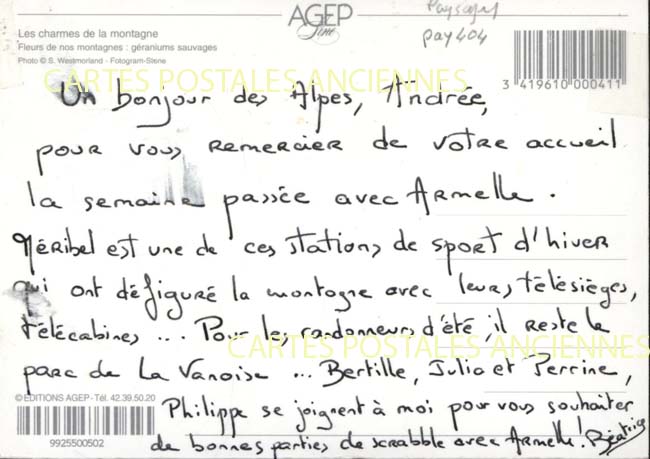 AGEP
Fine
Paysages
pay 404
Les charmes de la montagne
Fleurs de nos montagnes : géraniums sauvages
Photo © S. Westmorland - Fotogram-Stone
3 419610 000411
CARTES POSTALES ANCIENNES
Un bonjour des Alpes, Andrée,
pour vous remercier de votre accueil
la semaine passée avec Armelle.
Méribel est une de ces stations de sport d'hiver
qui ont défiguré la montagne avec leurs télésièges,
télécabines ... Pour les randonneurs d'été, il reste le
CARTES POSTALES ANCIENNES
parc de La Vanoise ... Bertille, Julia et Perrine,
© EDITIONS AGEP - Tél. 42.39.50.20
Philippe se joignent à moi pour vous souhaiter
de bonnes parties de scrabble avec Armelle! Béatrice
9925500502